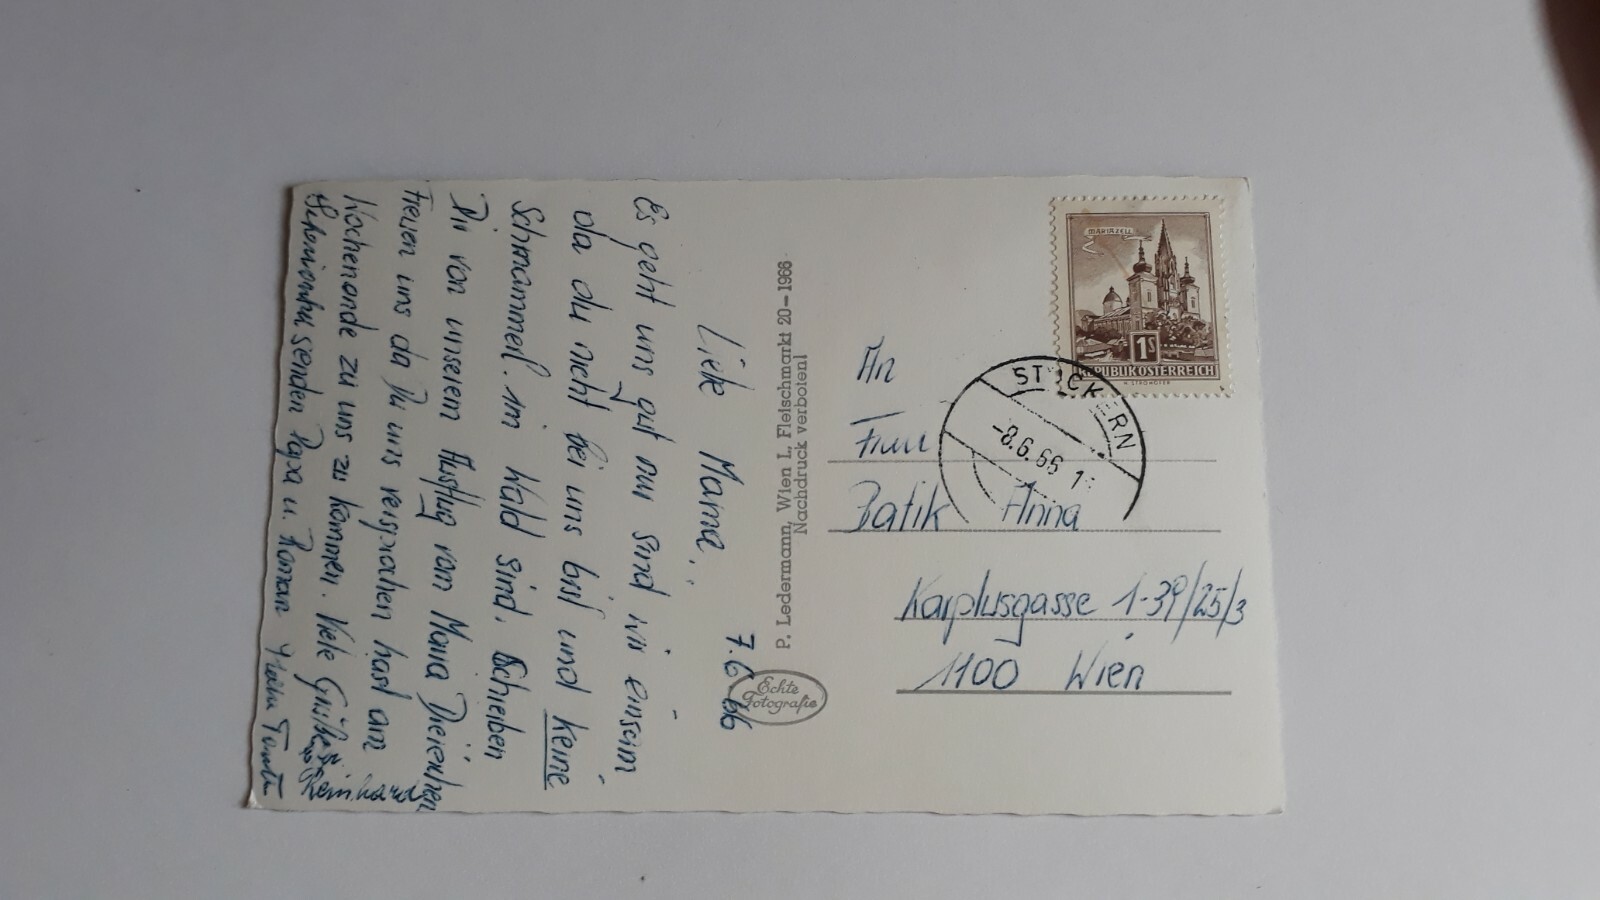 7.6.66
Liebe Mama.,
Es geht uns gut nur sind wir einsam
da du nicht bei uns bist und keine
Schwammerl im Wald sind. Schreiben
Dir von unserem Ausflug vom Maria
freuen uns da Du uns versprochen hast am
Wochenende zu uns zu kommen. Viele Grüße
senden Papa u. Roman
Reinhard
P. Ledermann, Wien I., Fleischmarkt 20-1966
Nachdruck verboten!
Echte
Fotografie
MARIAZELL
1S
REPUBLIK ÖSTERREICH
STOCKERN
-8.6.66
An
Frau
Batik Anna
Karplusgasse 1-39/25/3
1100 Wien